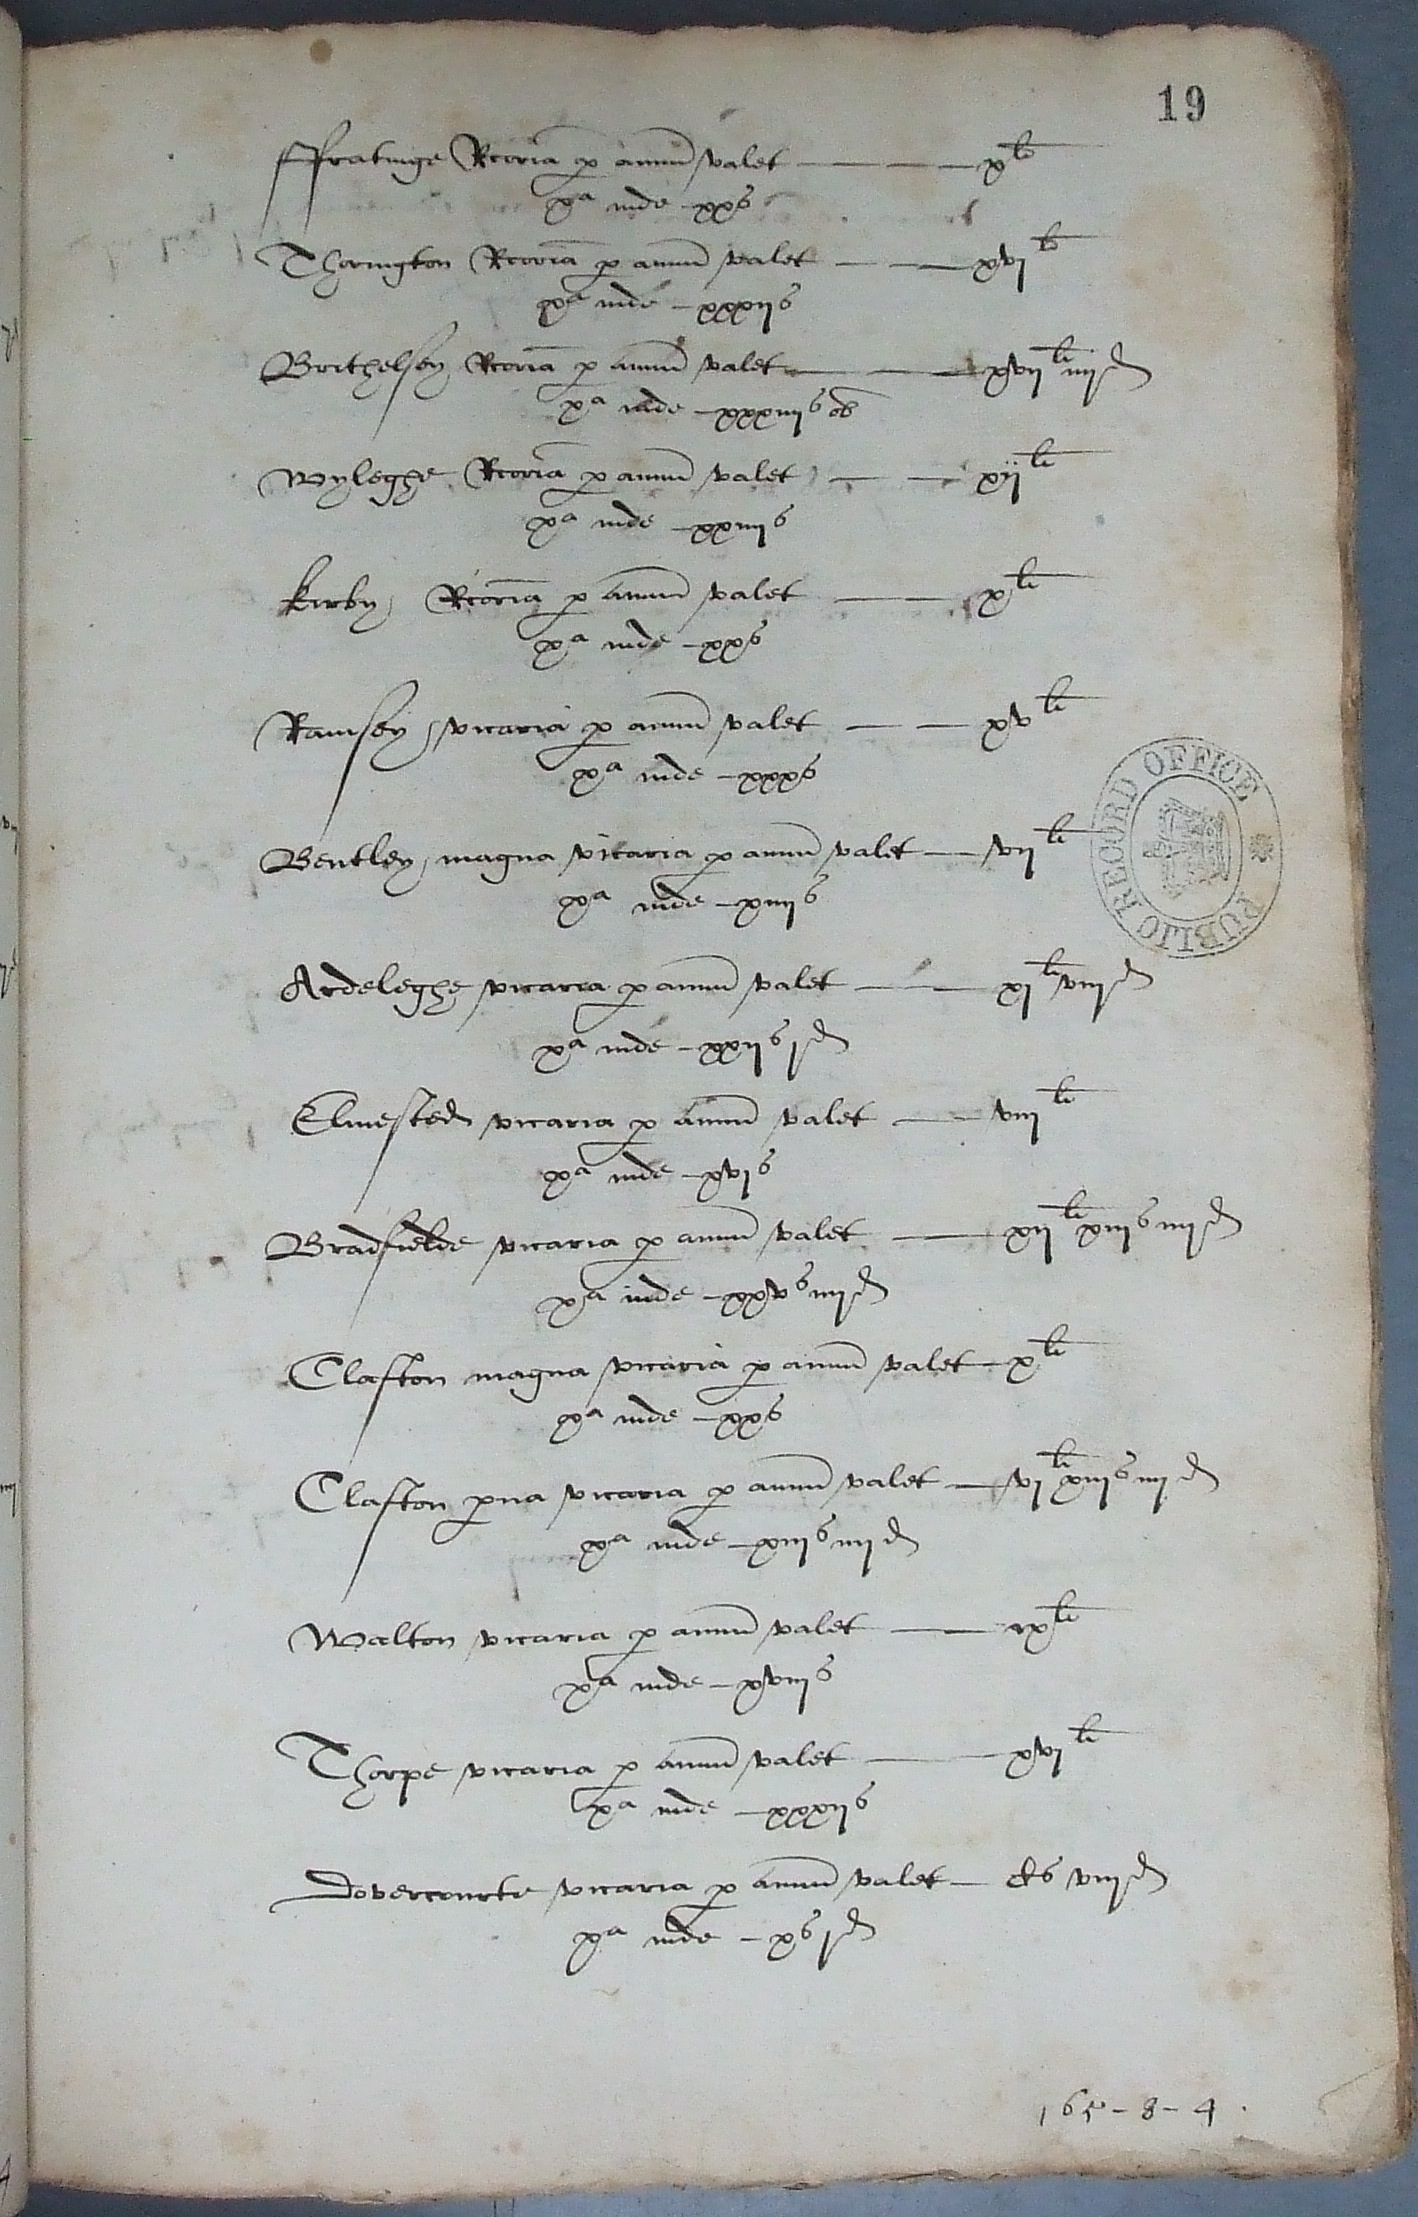 19
ffratinge Rcoria p annu valet — — — x li
xa inde – xx s
Thorington Rcoria p annu valet — — xvj li
xa inde – xxxij s
Brithelsey Rcoria p annu valet — — xvij li iiij d
xa inde – xxxiiij s ob
Wyleghe Rcoria p annu valet — — xij li
xa inde – xxiiij s
Kirby Rcoria p annu valet — — x li
xa inde – xx s
Ramsey vicaria p annu valet — — xv li
xa inde – xxx s
Bentley magna vicaria p annu valet — vij li
xa inde – xiiij s
Ardeleghe vicaria p annu valet — — xj li viij d
xa inde – xxij s j d
Elmested vicaria p annu valet — viij li
xa inde – xvj s
Bradfielde vicaria p annu valet — xij li xiij s iiij d
xa inde – xxv s iiij d
Clafton magna vicaria p annu valet – x li
xa inde – xx s
Clafton pva vicaria p annu valet — vj li xiij s iiij d
xa inde – xiij s iiij d
Walton vicaria p annu valet — ix li
xa inde – xviij s
Thorpe vicaria p annu valet — xvj li
xa inde – xxxij s
Dovercourte vicaria p annu valet – C s viij d
xa inde – x s j d
PUBLIC RECORD OFFICE
165–8–4